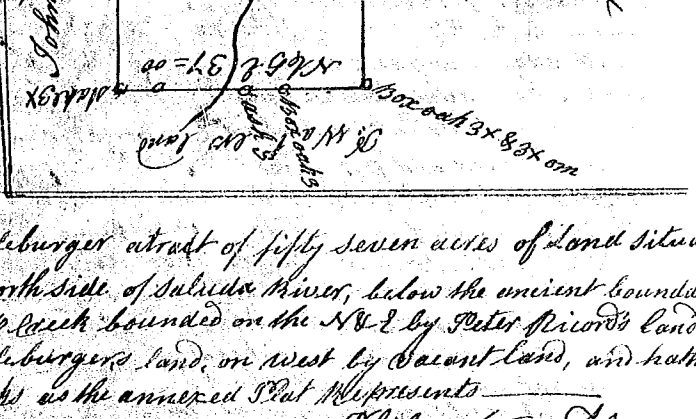 John
N65E 37=00
stake 3X
ash 3
Box oak 3
Box oak 3x & 3x om
land
leburger a tract of fifty seven acres of Land situa
orth side of Saluda River, below the ancient bounda
Creek bounded on the N&E by Peter Ricord's land
leburgers land, on west by vacant land, and hath
ks as the annexed Plat Represents